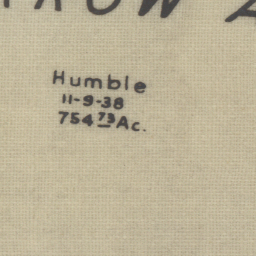 Humble
11-9-38
754 73 Ac.